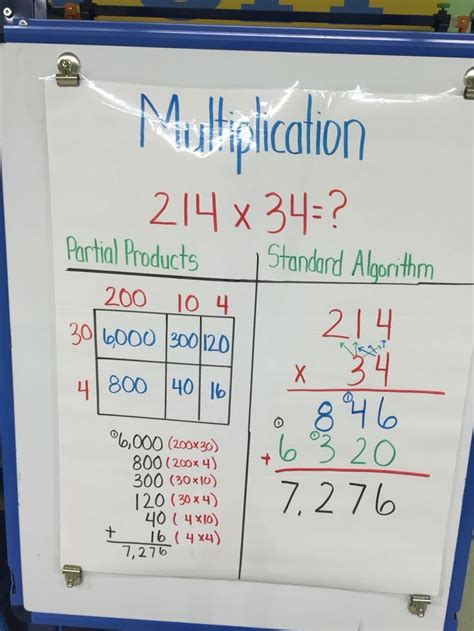 Multiplication
214 x 34=?
Partial Products
200 10 4
30 6,000 300 120
4 800 40 16
①6,000 (200x30)
800 (200x4)
300 (30x10)
120 (30x4)
40 (4x10)
+ 16 (4x4)
7,276
Standard Algorithm
214
x 34
① 8①46
+ 6①320
7,276